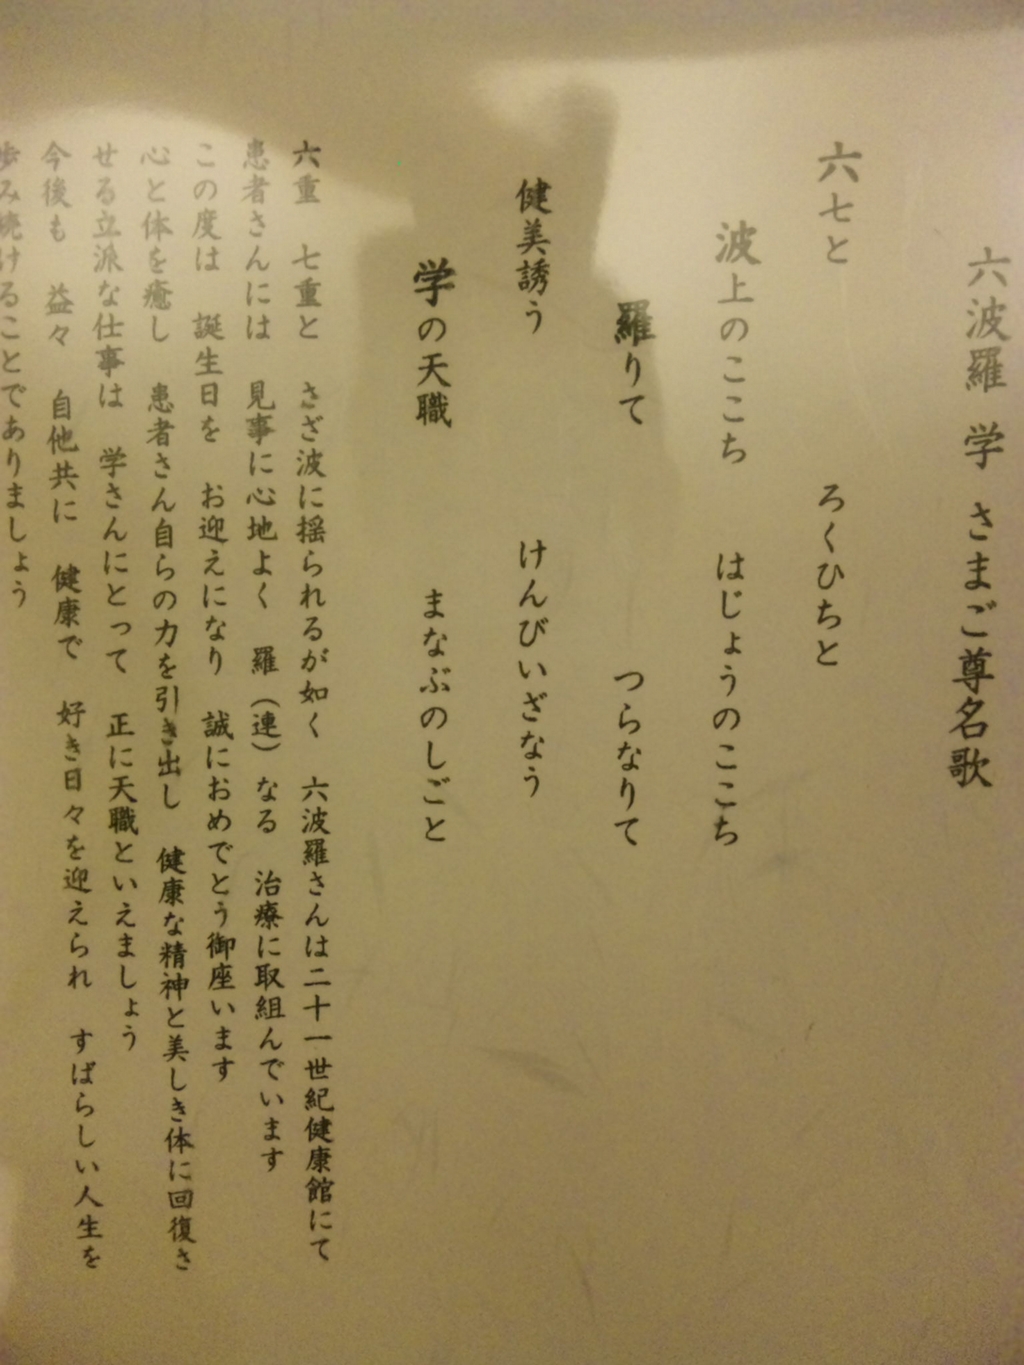 六波羅 学 さまご尊名歌
六七と ろくひちと
波上のここち はじょうのここち
羅りて つらなりて
健美誘う けんびいざなう
学の天職 まなぶのしごと
六重 七重と さざ波に揺られるが如く 六波羅さんは二十一世紀健康館にて
患者さんには 見事に心地よく 羅（連）なる 治療に取組んでいます
この度は 誕生日を お迎えになり 誠におめでとう御座います
心と体を癒し 患者さん自らの力を引き出し 健康な精神と美しき体に回復さ
せる立派な仕事は 学さんにとって 正に天職といえましょう
今後も 益々 自他共に 健康で 好き日々を迎えられ すばらしい人生を
歩み続けることでありましょう